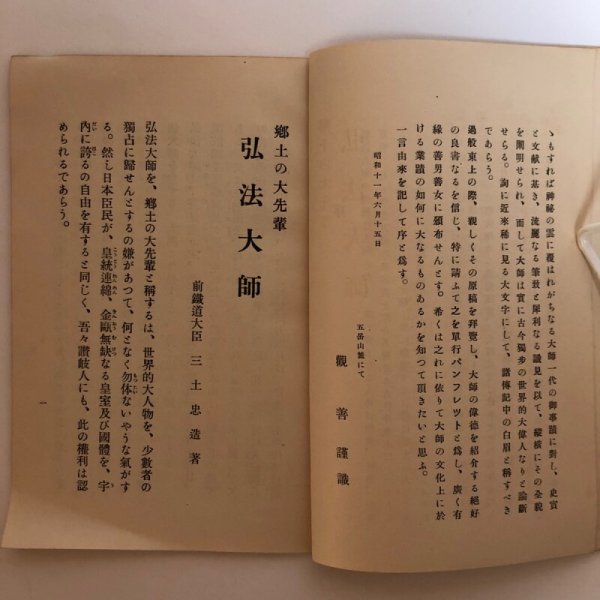 ゝもすれば神秘の雲に覆はれがちなる大師一代の御事蹟に對し、史實
と文献に基き、流麗なる筆致と犀利なる議見を以て、縱橫にその全貌
を闡明せられ、而して大師は實に古今獨步の世界的大偉人なりと論斷
せらる。洵に近來稀に見る大文字にして、諸傳記中の白眉と稱すべき
であらう。
過般東上の際、親しくその原稿を拜覽し、大師の偉德を紹介する絕好
の良書なるを信じ、特に請ふて之を單行パンフレツトと爲し、廣く有
緣の善男善女に頒布せんとす。希くは之れに依りて大師の文化上に於
ける業蹟の如何に大なるものあるかを知つて頂きたいと思ふ。
一言由來を記して序と爲す。
昭和十一年六月十五日
五岳山麓にて
觀善謹識
鄕土の大先輩
弘法大師
前鐵道大臣 三土忠造著
弘法大師を、鄕土の大先輩と稱するは、世界的大人物を、少數者の
獨占に歸せんとするの嫌があつて、何となく勿体ないやうな氣がす
る。然し日本臣民が、皇統連綿、金甌無缺なる皇室及び國體を、宇
內に誇るの自由を有すると同じく、吾々讃岐人にも、此の權利は認
められるであらう。
一